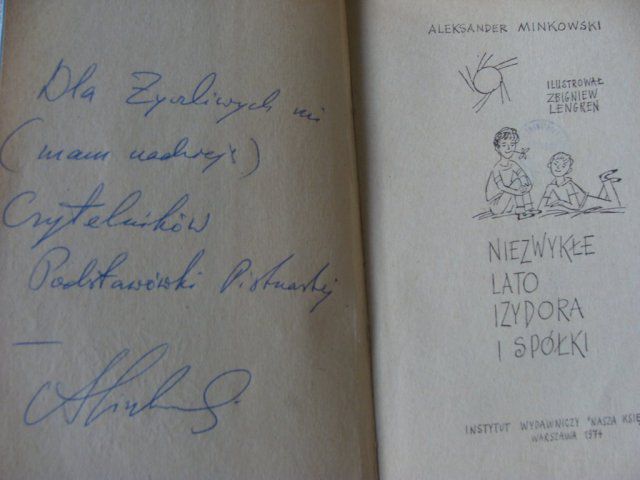 Dla Życzliwych mi
(mam nadzieję)
Czytelników
Podstawówki Piętnastej
ALEKSANDER MINKOWSKI
ILUSTROWAŁ
ZBIGNIEW
LENGREN
NIEZWYKŁE
LATO
IZYDORA
I SPÓŁKI
INSTYTUT WYDAWNICZY "NASZA KSIĘ
WARSZAWA 1974